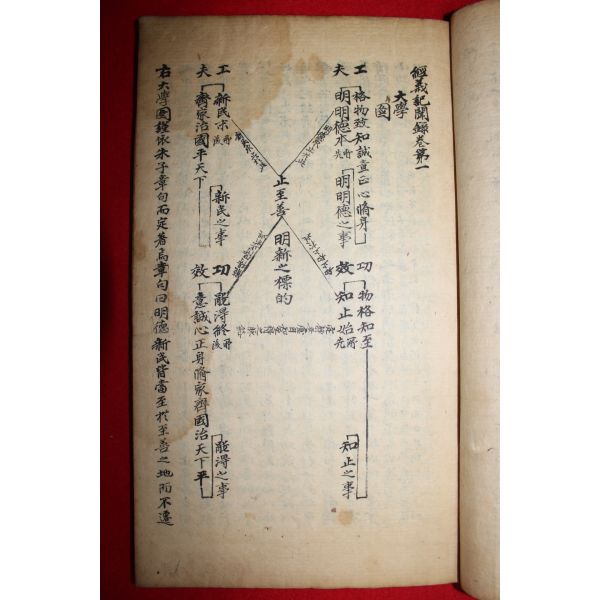 經義記聞錄卷第一
大學
圖
工夫
格物致知誠意正心脩身
明明德本所先
明明德之事
功效
物格知至
知止始所先
知止之事
止至善
明新之標的
工夫
新民末所後
新民之事
齊家治國平天下
功效
能得終所後
能得之事
意誠心正身脩家齊國治天下平
右大學圖謹依朱子章句而定著焉章句曰明德新民皆當至於至善之地而不遷